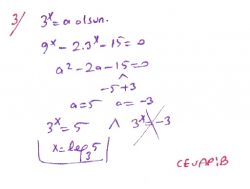 3/ 3^x = a olsun.
9^x - 2.3^x - 15 = 0
a^2 - 2a - 15 = 0
^
-5 +3
a = 5 a = -3
3^x = 5 ∧ 3^x = -3
x = log_3 5
CEVAP: B